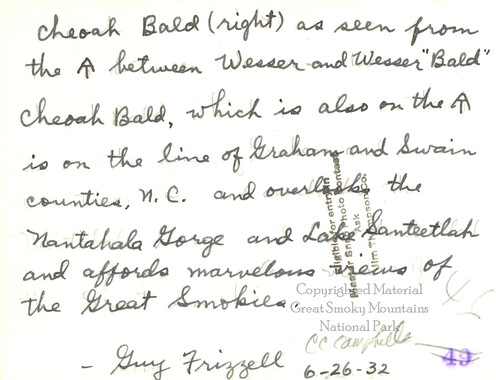 Cheoah Bald (right) as seen from
the between Wesser and Wesser "Bald"
Cheoah Bald, which is also on the
is on the line of Graham and Swain
counties, N.C. and overlooks the
Nantahala Gorge and Lake Santeetlah
and affords marvelous views of
the Great Smokies.
- Guy Frizzell
6-26-32
CC Campbell
49
Eligible for entry in
Photo Contest
Ask
Jim Thompson Co.
Copyrighted Material
Great Smoky Mountains
National Park